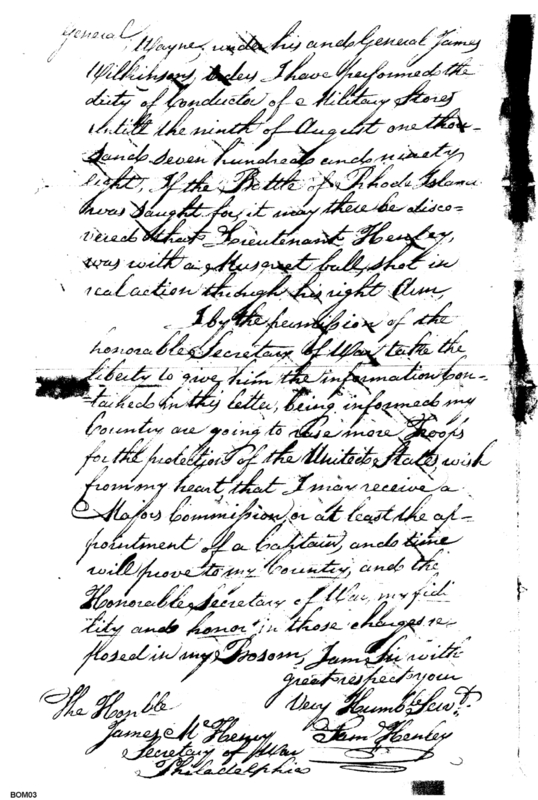 General
Wayne, under his and General James
Wilkinsons, orders I have performed the
duty of Conductor of a Military Stores
untill the ninth of August one thou-
sand seven hundred and ninety
eight, If the Battle of Rhode Island
was saught for, it may there be disco-
vered that Lieutenant Henley,
was with a Musquet ball, shot in
real action through his right Arm,
I by the permission of the
honorable Secretary of War, take the
liberty to give him the information Con-
-tained in this letter, being informed my
Country are going to raise more Troops
for the protection of the United States, wish
from my heart that I may receive a
Majors Commission, or at least the ap-
pointment of a Captain, and time
will prove to my Country, and the
Honorable Secretary of War, my fidi
lity and honor in those charges re-
posed in my Bosom, I am Sir with
great respect your
Very Humble Servt.
Sam Henley
The Honble
James McHenry
Secretary of War
Philadelphia
BOM03